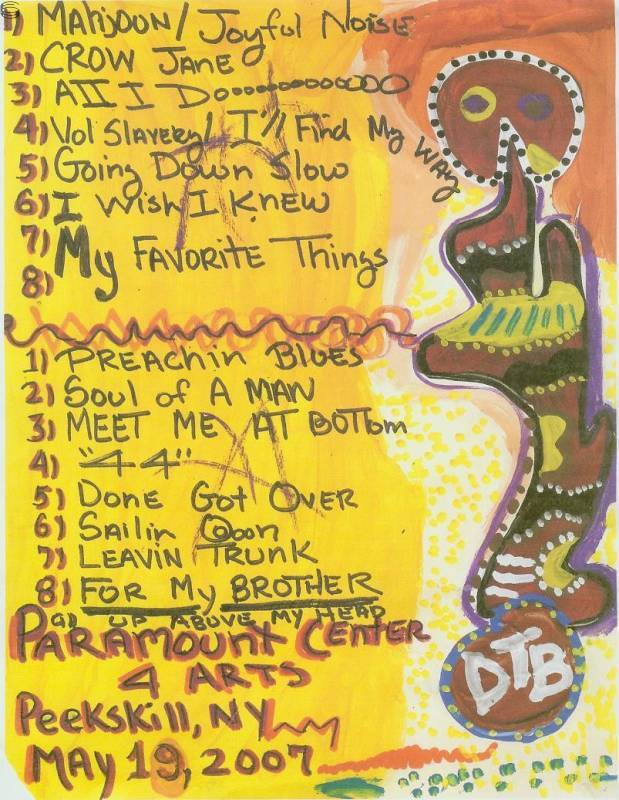 1) MAHJOUN/ Joyful NOISE
2) CROW JANE
3) All I Doooooooooooo
4) Vol Slavery/ I'll Find My WAY
5) Going Down Slow
6) I Wish I Knew
7) My FAVORITE Things
8)
1) PREACHIN BLUES
2) Soul of A MAN
3) MEET ME AT BOTTOM
4) "44"
5) DONE GOT OVER
6) Sailin
7) LEAVIN TRUNK
8) FOR My BROTHER
9) UP ABOVE MY HEAD
PARAMOUNT CENTER
4 ARTS
Peekskill, NY
MAY 19, 2007
DTB